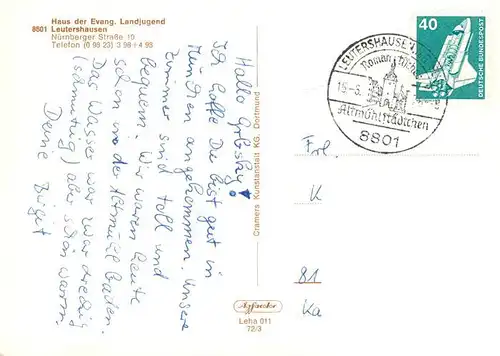 Haus der Evang. Landjugend
8801 Leutershausen
Nürnberger Straße 10
Telefon (0 98 23) 3 98 + 4 93
Hallo
Ich hoffe Du bist gut in
München angekommen. Unsere
Zimmer sind toll und
bequem. Wir waren heute
schon in der Altmühl baden.
Das Wasser war zwar dreckig
(schmutzig) aber schön warm.
Deine Birgit
Cramers Kunstanstalt KG. Dortmund
Leha 011
72/3
LEUTERSHAUSEN
Roman
15-8.
Altmühlstädtchen
8801
40
DEUTSCHE BUNDESPOST
Frl.
K
81
Ka